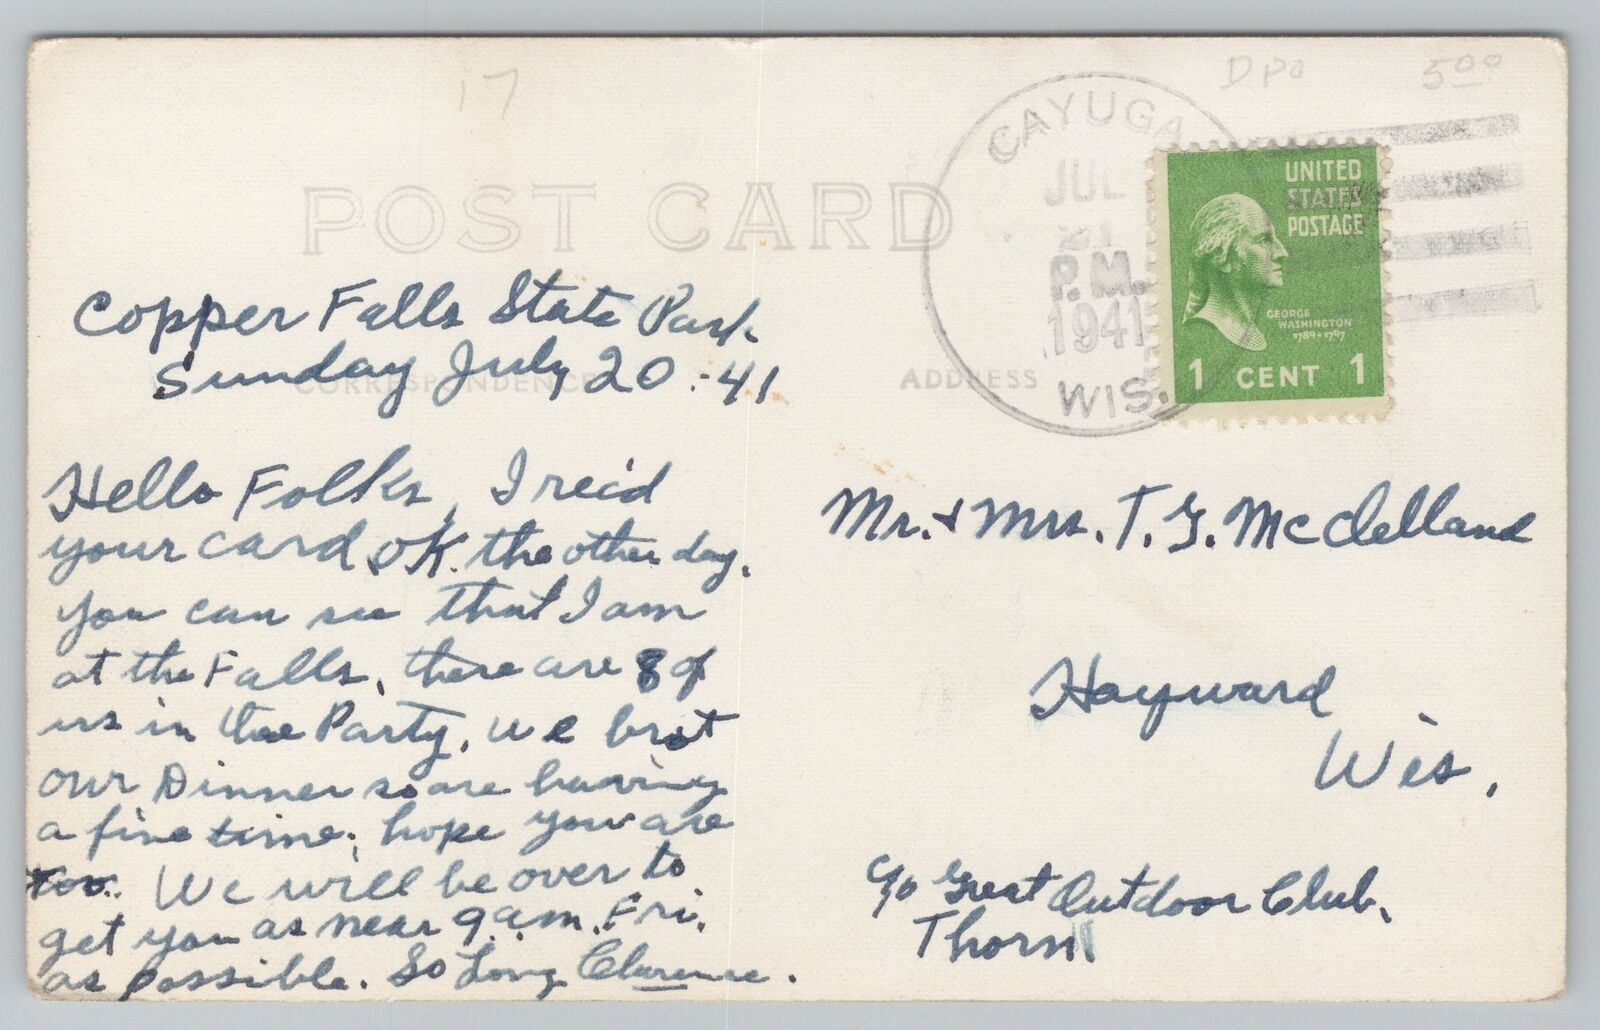 17
DPO
5⁰⁰
CAYUGA
JUL
21
P.M.
1941
WIS.
UNITED
STATES
POSTAGE
GEORGE
WASHINGTON
1789-1797
1 CENT 1
POST CARD
CORRESPONDENCE
ADDRESS
Copper Falls State Park.
Sunday July 20 - 41
Hello Folks, I rec'd
your card OK the other day.
You can see that I am
at the Falls, there are 8 of
us in the Party, we brot
our Dinner so are having
a fine time, hope you are
too. We will be over to
get you as near 9 a.m. Fri.
as possible. So Long Clarence.
Mr. + Mrs. T. G. McClelland
Hayward
Wis.
c/o Great Outdoor Club,
Thorn